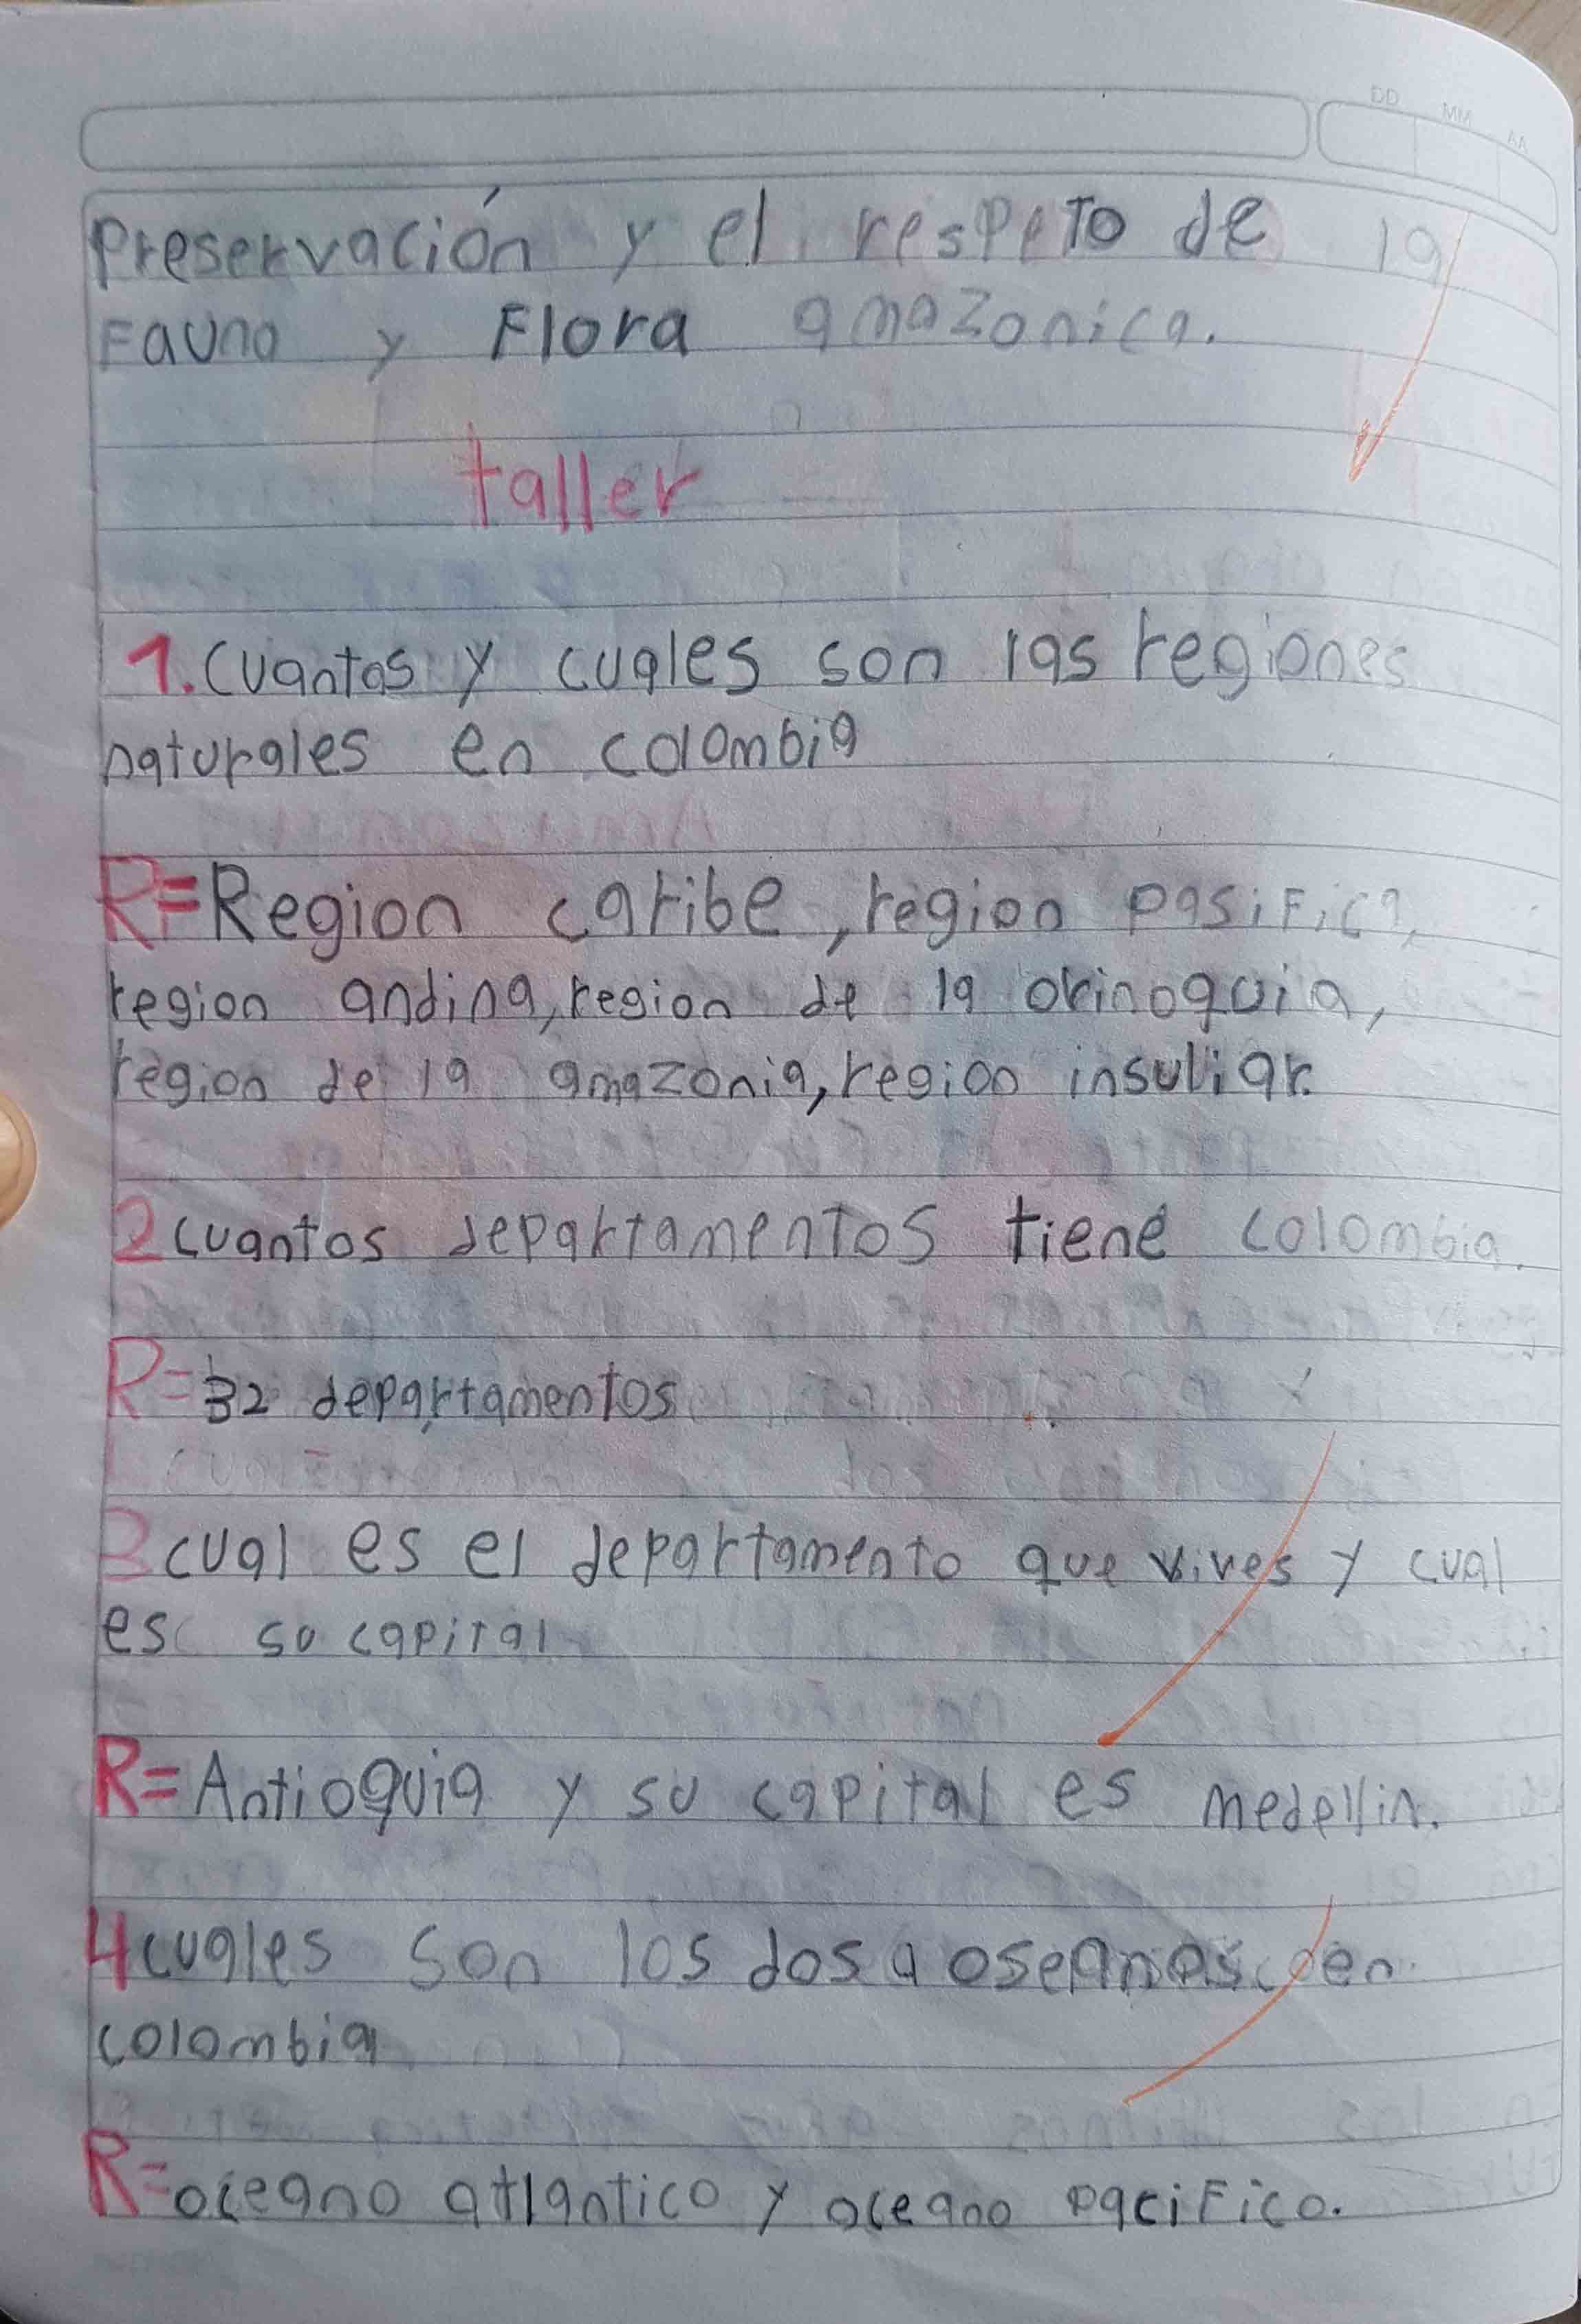 DD MM AA
Preservación y el respeto de la
Fauna y Flora amazonica.
taller
1. Cuantas y cuales son las regiones
naturales en colombia
R=Region caribe, region pasifica,
region andina, region de la orinoquia,
region de la amazonia, region insuliar.
2 cuantos departamentos tiene colombia.
R=32 departamentos
3 cual es el departamento que vives y cual
es su capital
R=Antioquia y su capital es medellin.
4 cuales son los dos oseanos en
colombia
R=oceano atlantico y oceano pacifico.